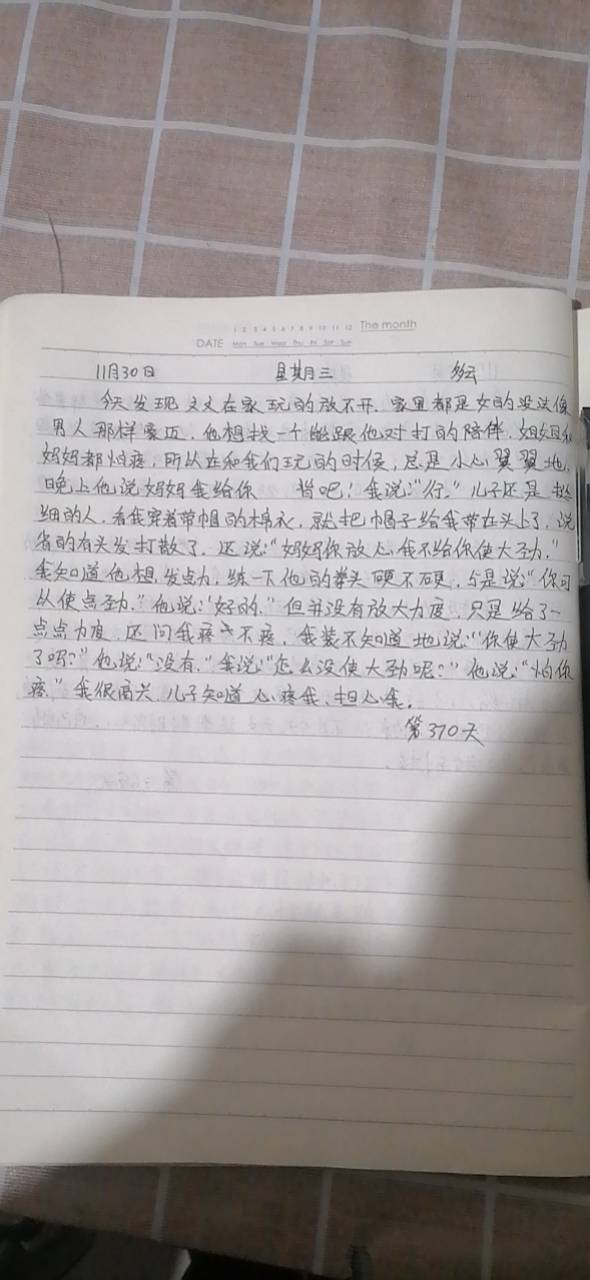 1 2 3 4 5 6 7 8 9 10 11 12 The month
DATE Mon Tue Wed Thu Fri Sat Sun
11月30日 星期三 多云
今天发现文文在家玩的放不开，家里都是女的没法像
男人那样豪迈，他想找一个能跟他对打的陪伴，姐姐和
妈妈都怕疼，所以在和我们玩的时候，总是小心翼翼地，
晚上他说妈妈我给你 背吧！我说：“行。”儿子还是挺
细的人，看我穿着带帽的棉衣，就把帽子给我带在头上了，说
省的有头发打散了，还说：“妈妈你放心我不给你使大劲，”
我知道他想发点力，练一下他的拳头硬不硬，于是说：“你可
以使点劲，”他说：“好的，”但并没有放大力度，只是给了一
点点力度，还问我疼不疼，我装不知道地说：“你使大劲
了吗？”他说：“没有，”我说：“怎么没使大劲呢？”他说：“怕你
疼，”我很高兴，儿子知道心疼我，担心我。
第370天